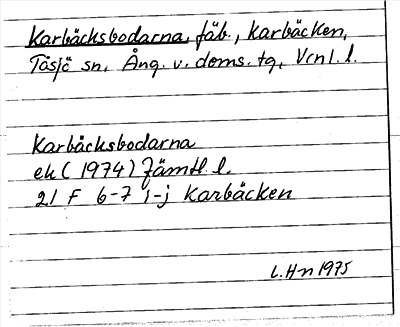 Karbäcksbodarna, fäb., Karbäcken,
Tåsjö sn, Ång. v. doms. tg, Vrnl. l.
Karbäcksbodarna
ek (1974) Jämtl. l.
21 F 6-7 i-j Karbäcken
L. H-n 1975